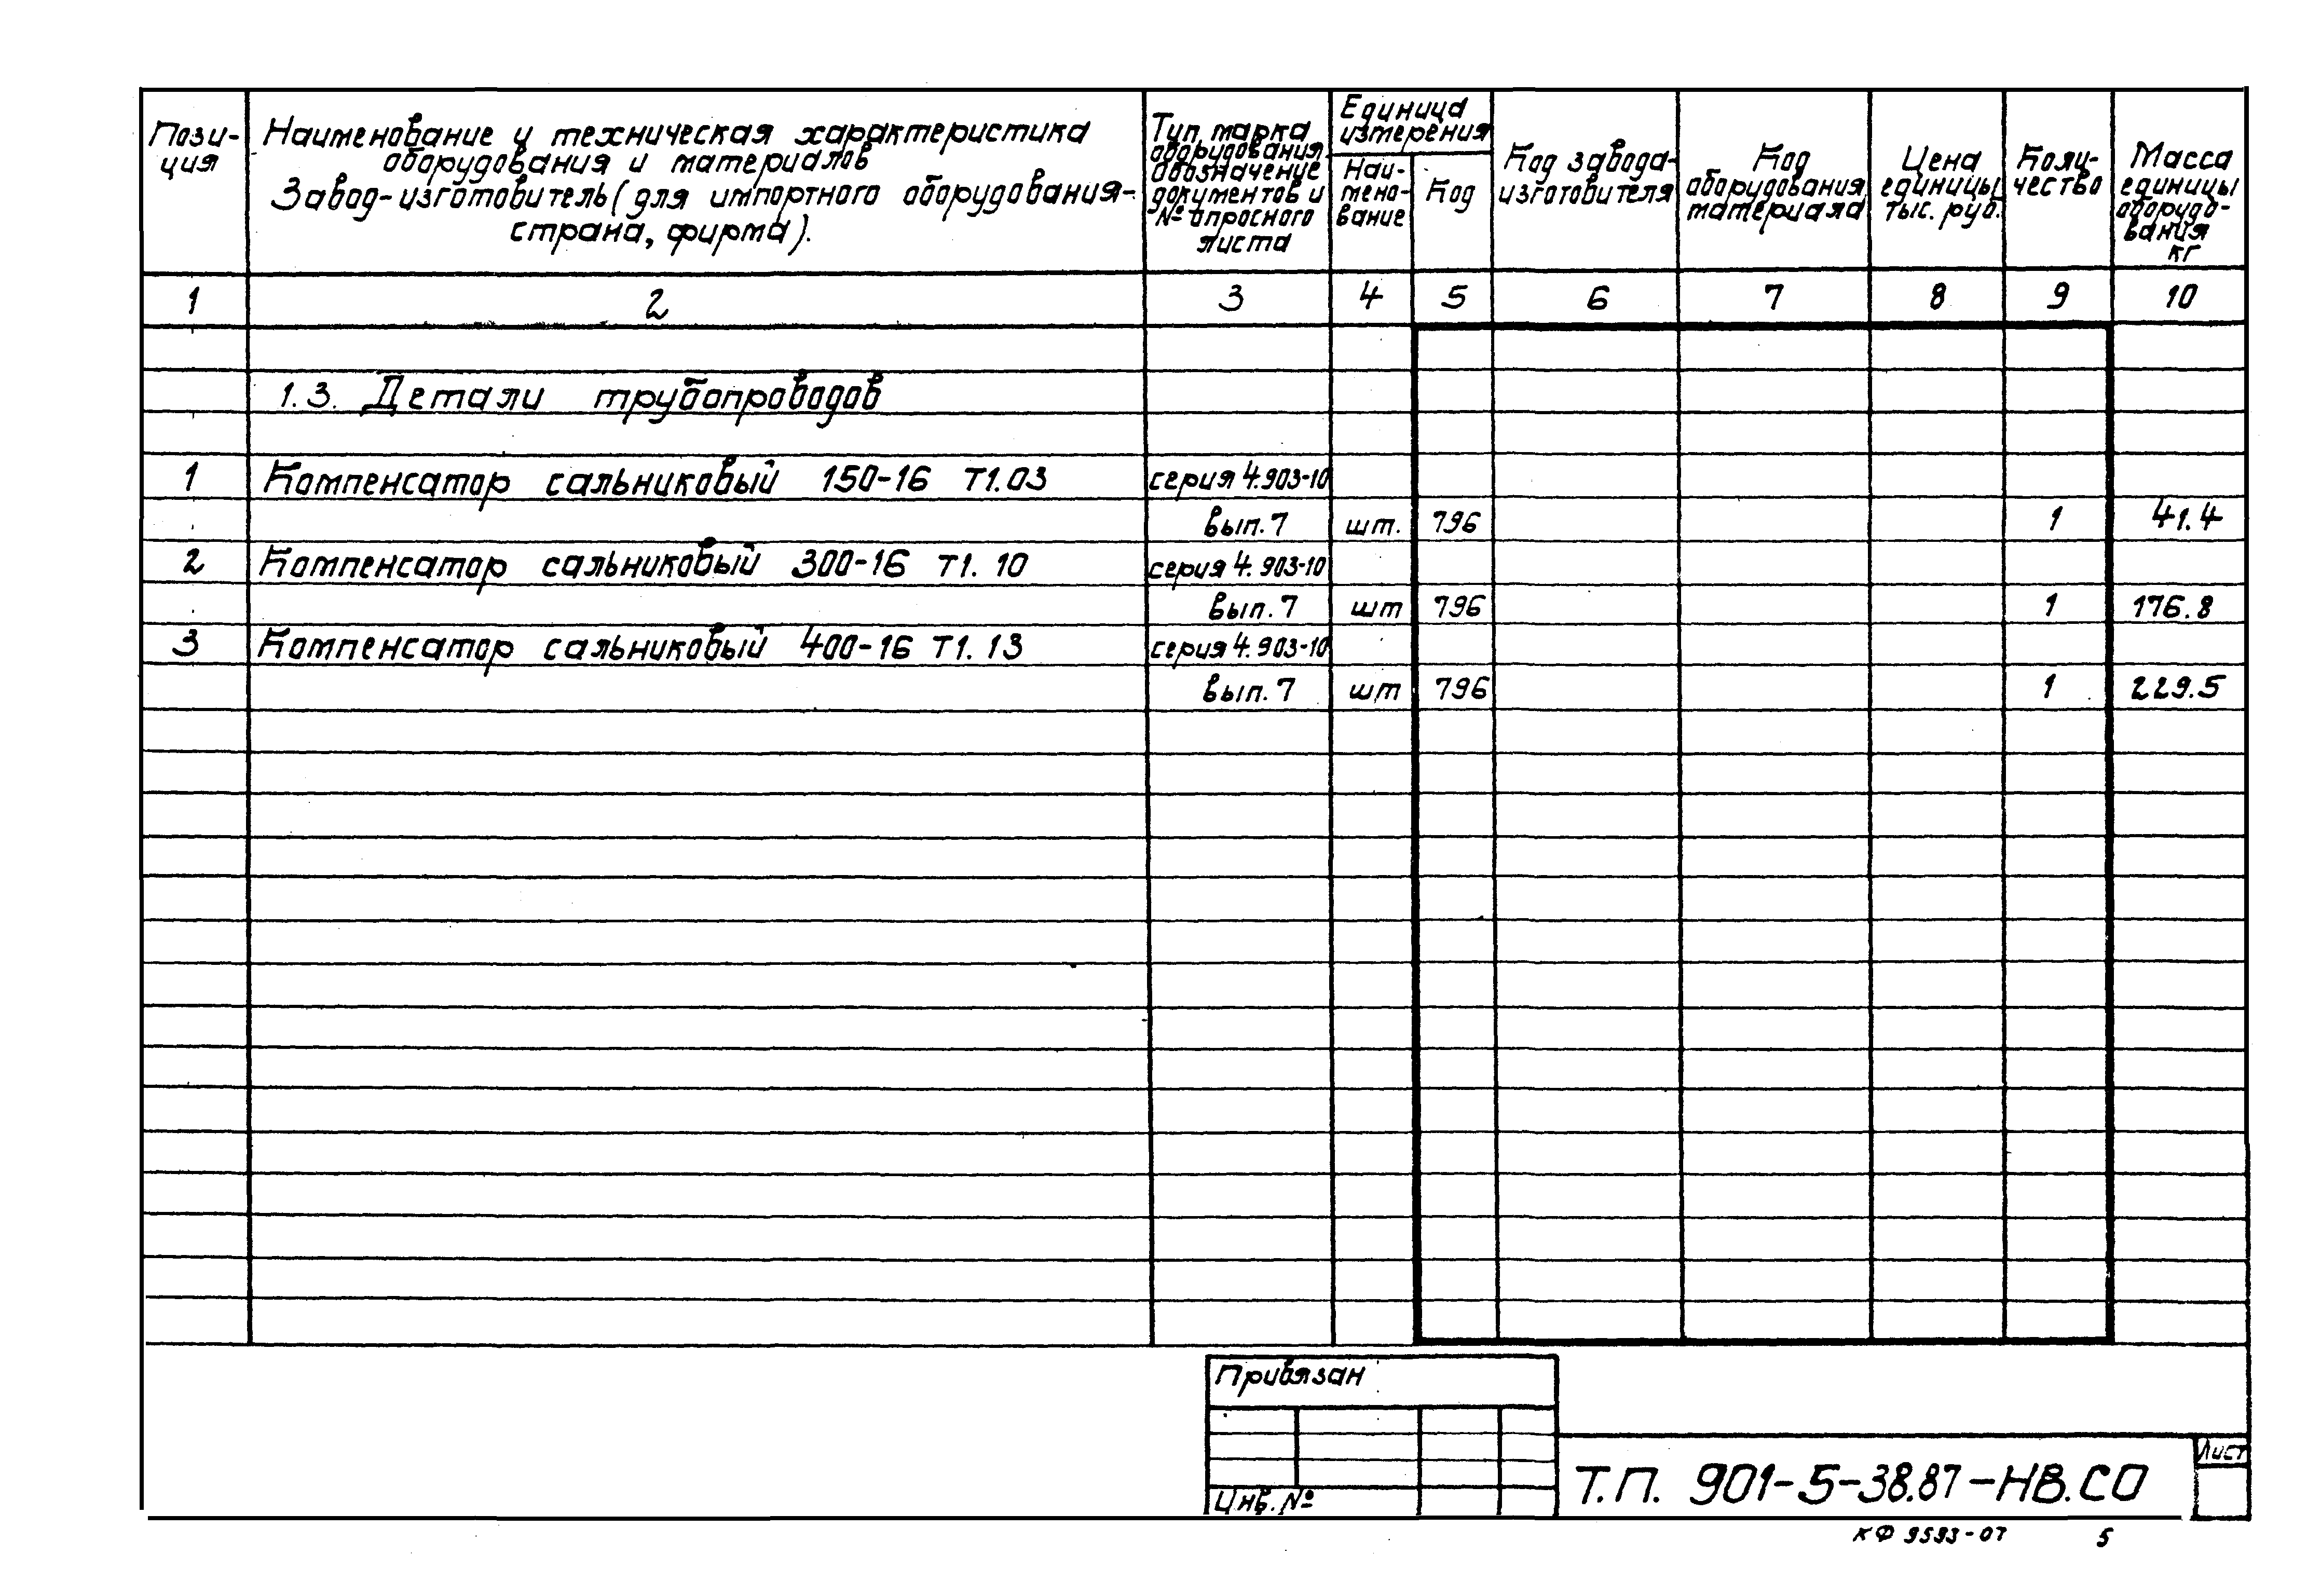 Пози-
ция
Наименование и техническая характеристика
оборудования и материалов
Завод-изготовитель (для импортного оборудования-
страна, фирма).
Тип, марка
оборудования.
Обозначение
документов и
№ опросного
листа
Единица
измерения
Наи-
мено-
вание
Код
Код завода-
изготовителя
Код
оборудования,
материала
Цена
единицы,
тыс. руб.
Коли-
чество
Масса
единицы
оборудо-
вания
кг
1 2 3 4 5 6 7 8 9 10
1.3. Детали трубопроводов
1 Компенсатор сальниковый 150-16 Т1.03 серия 4.903-10
вып. 7 шт. 796 1 41.4
2 Компенсатор сальниковый 300-16 Т1.10 серия 4.903-10
вып. 7 шт 796 1 176.8
3 Компенсатор сальниковый 400-16 Т1.13 серия 4.903-10
вып. 7 шт 796 1 229.5
Привязан
Инв. №
Т.П. 901-5-38.87-НВ.СО
Лист
КФ 9593-07 5